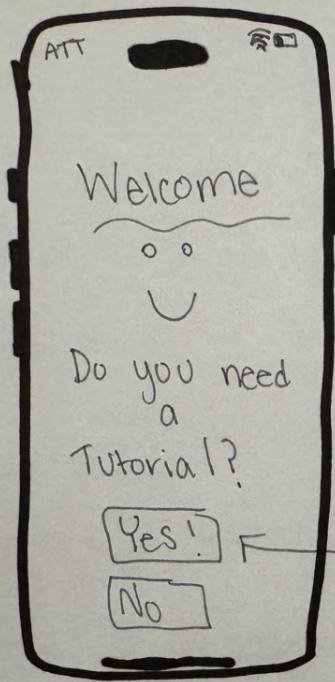 ATT
Welcome
Do you need
a
Tutorial?
Yes!
No